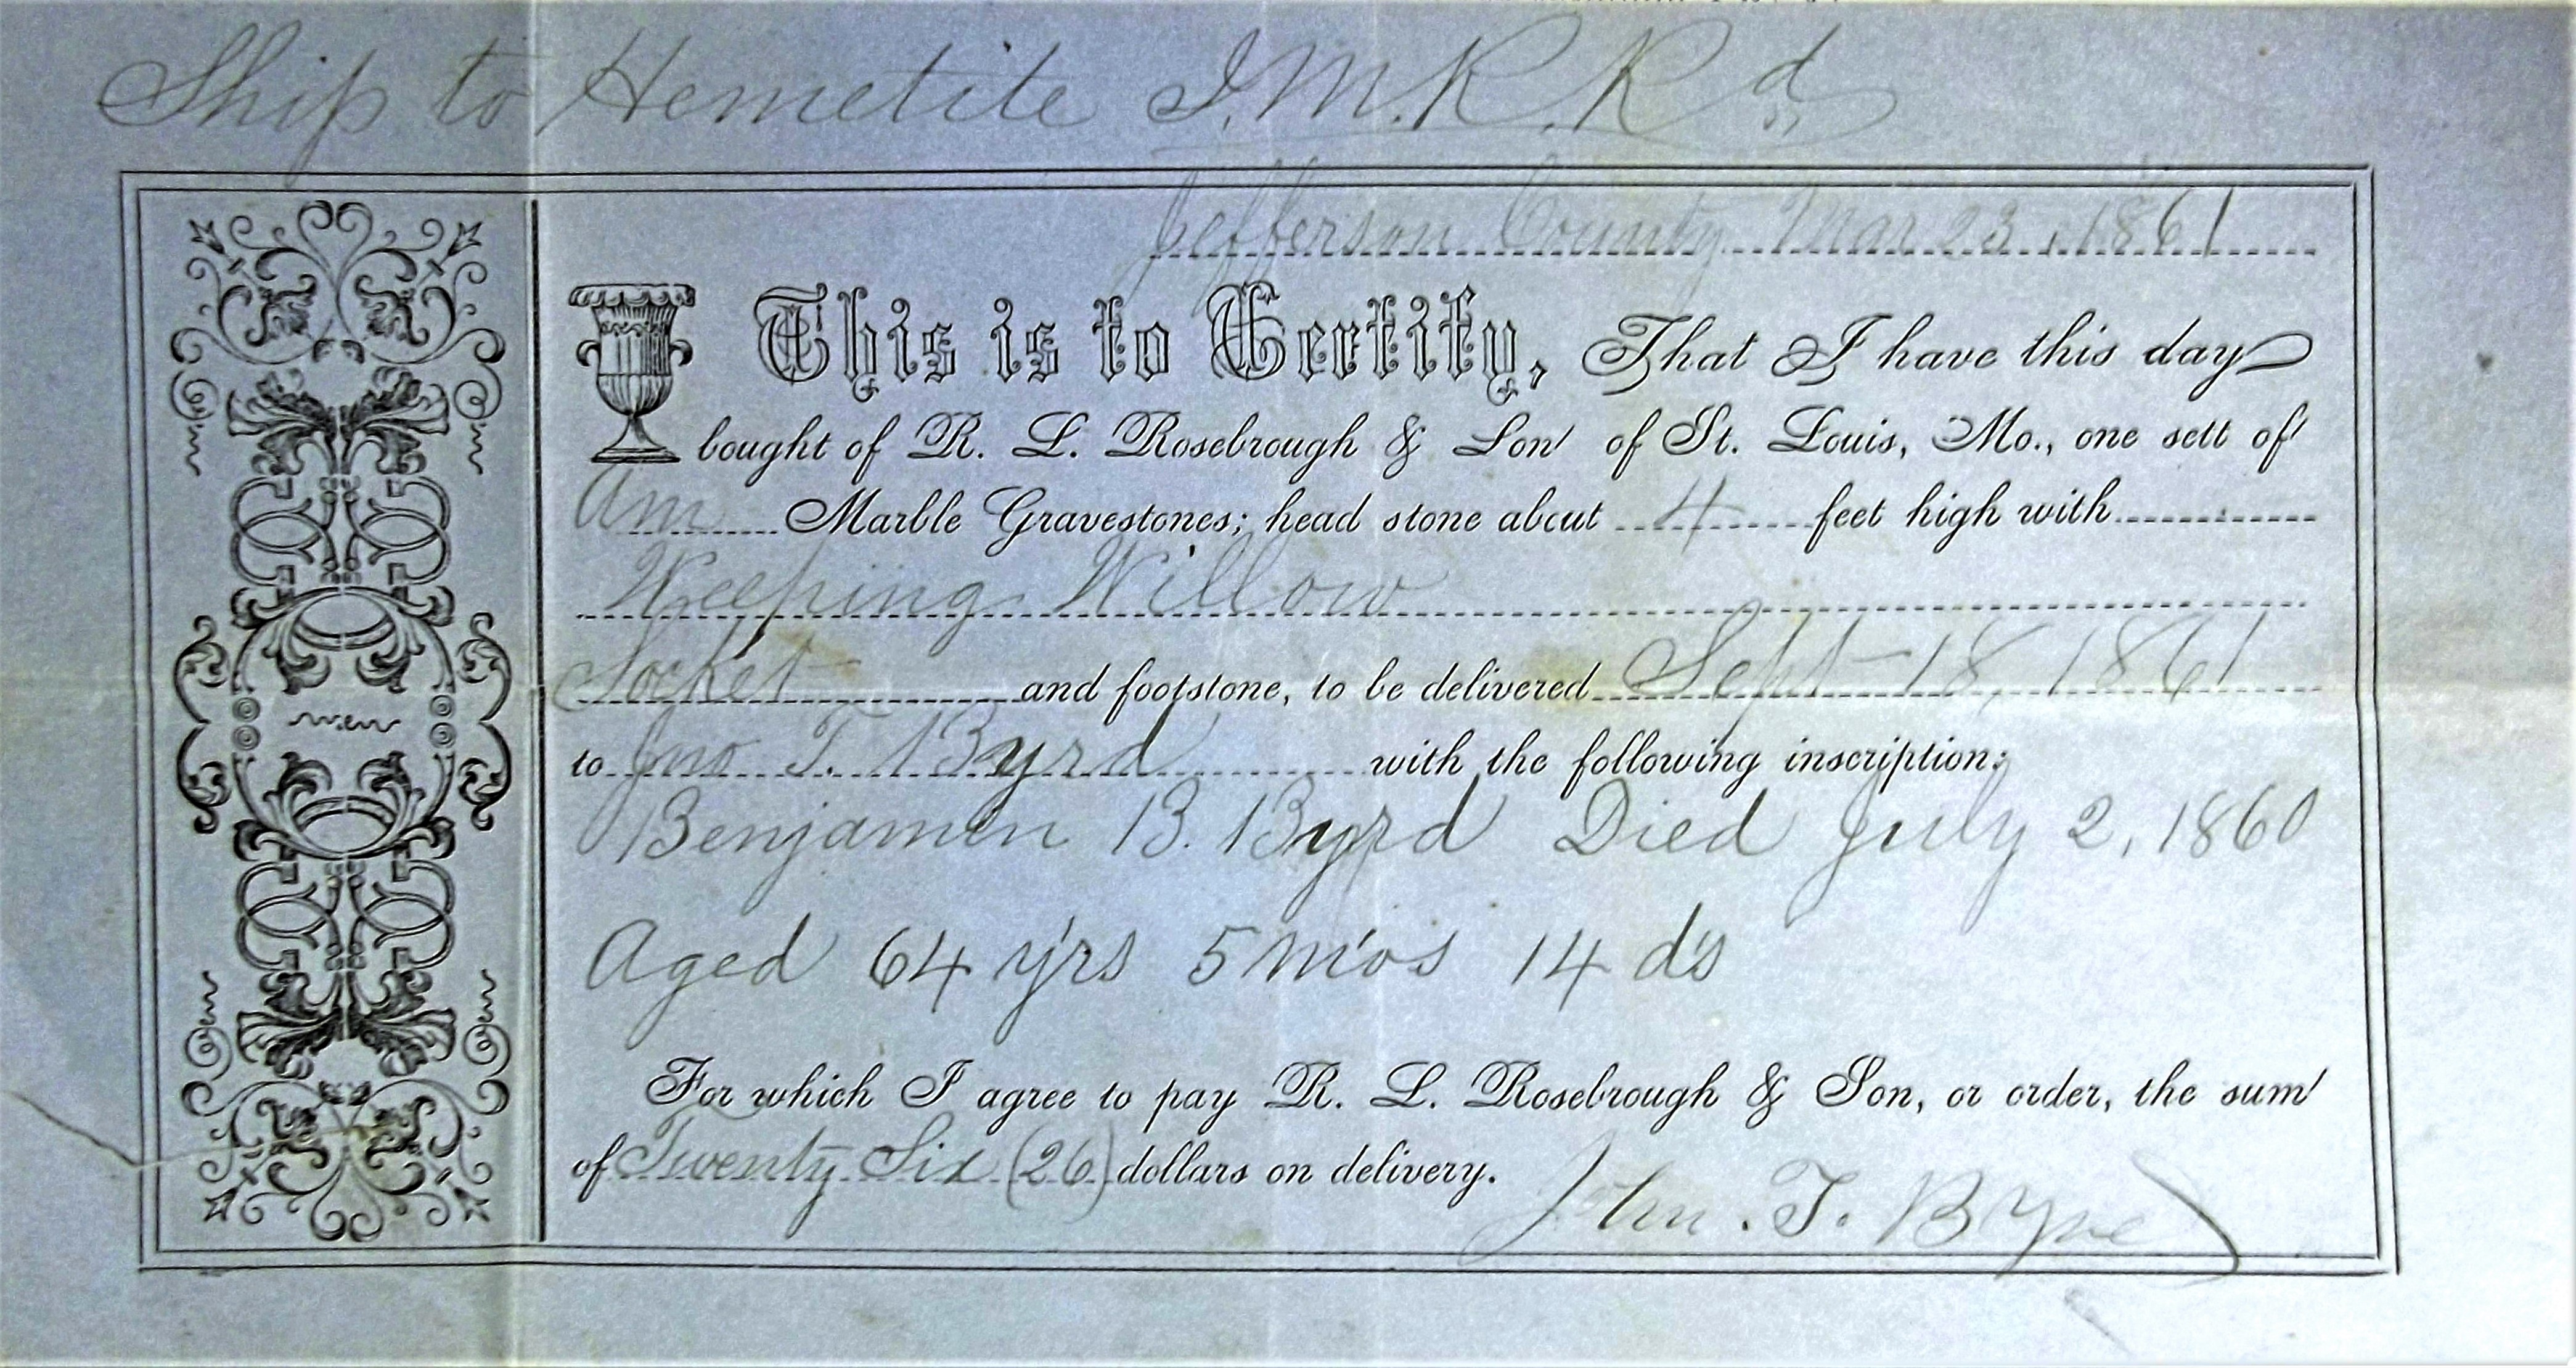 Ship to Hemetite I.M.R.Rd
Jefferson County Mar 23, 1861
This is to Certify, That I have this day
bought of R. L. Rosebrough & Son of St. Louis, Mo., one sett of
Am Marble Gravestones; head stone about 4 feet high with
Weeping Willow
Socket and footstone, to be delivered Sept 18, 1861
to Jno T. Byrd with the following inscription:
Benjamin B. Byrd Died July 2, 1860
Aged 64 y'rs 5 m'os 14 d's
For which I agree to pay R. L. Rosebrough & Son, or order, the sum
of Twenty Six (26) dollars on delivery.
John. T. Byrd